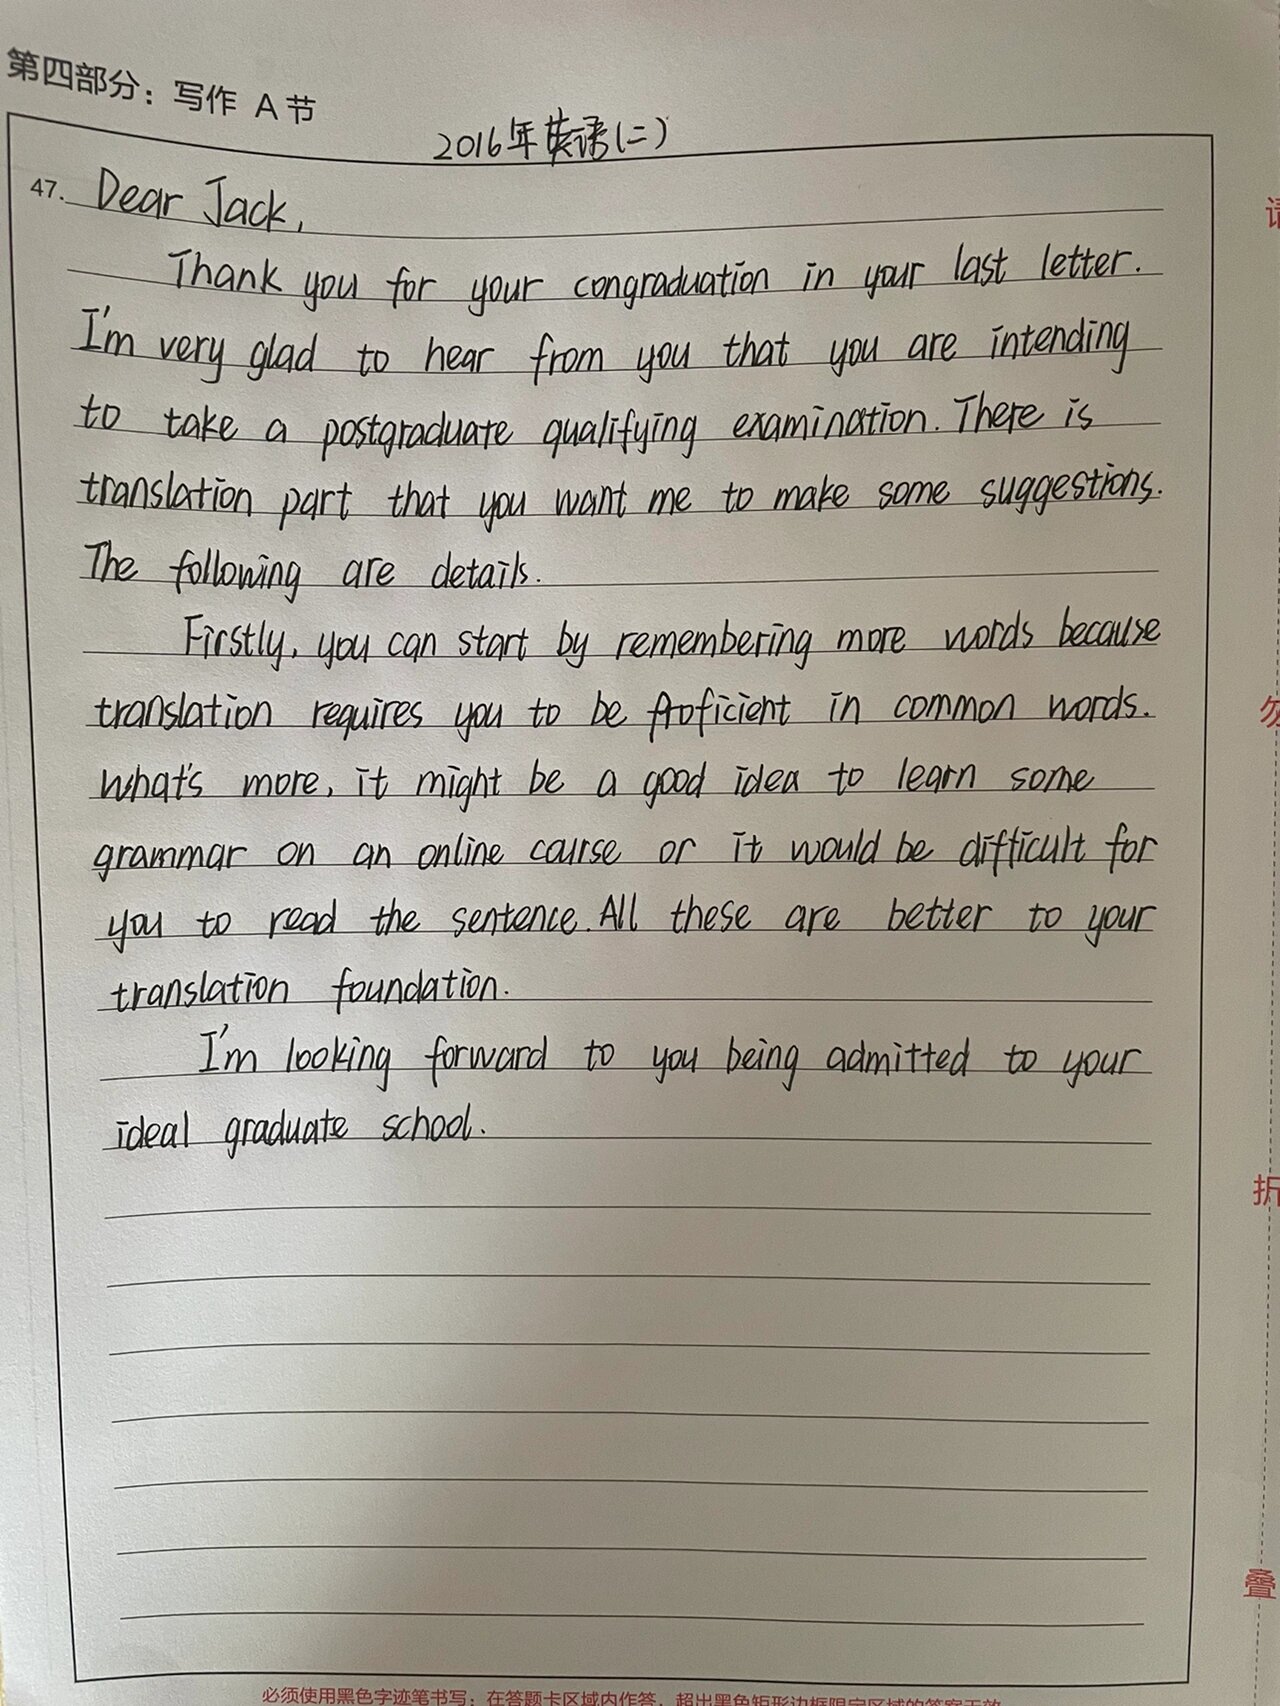 第四部分：写作 A节
2016年英语(二)
47. Dear Jack,
Thank you for your congraduation in your last letter.
I'm very glad to hear from you that you are intending
to take a postgraduate qualifying examination. There is
translation part that you want me to make some suggestions.
The following are details.
Firstly, you can start by remembering more words because
translation requires you to be proficient in common words.
What's more, it might be a good idea to learn some
grammar on an online course or it would be difficult for
you to read the sentence. All these are better to your
translation foundation.
I'm looking forward to you being admitted to your
ideal graduate school.
请
勿
折
叠
必须使用黑色字迹笔书写；在答题卡区域内作答，超出黑色矩形边框限定区域的答案无效